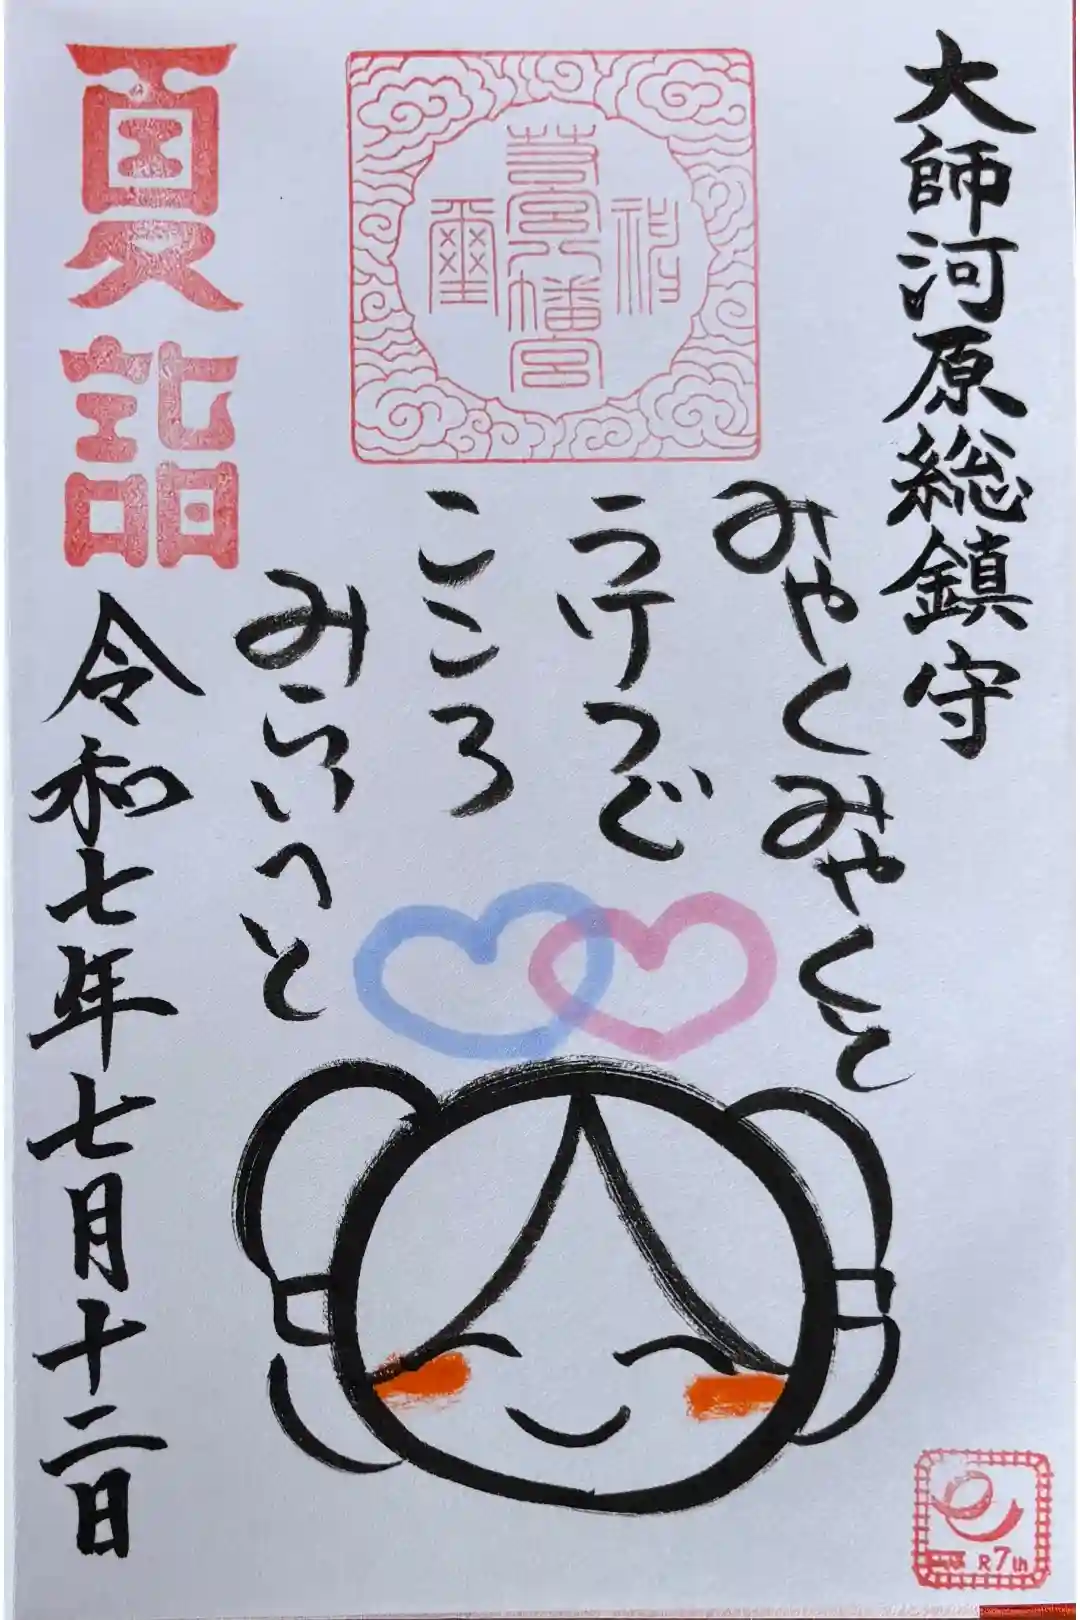 大師河原総鎮守
みやくみやくと
うけつぐ
こころ
みらいへと
夏詣
令和七年七月十二日
R7th